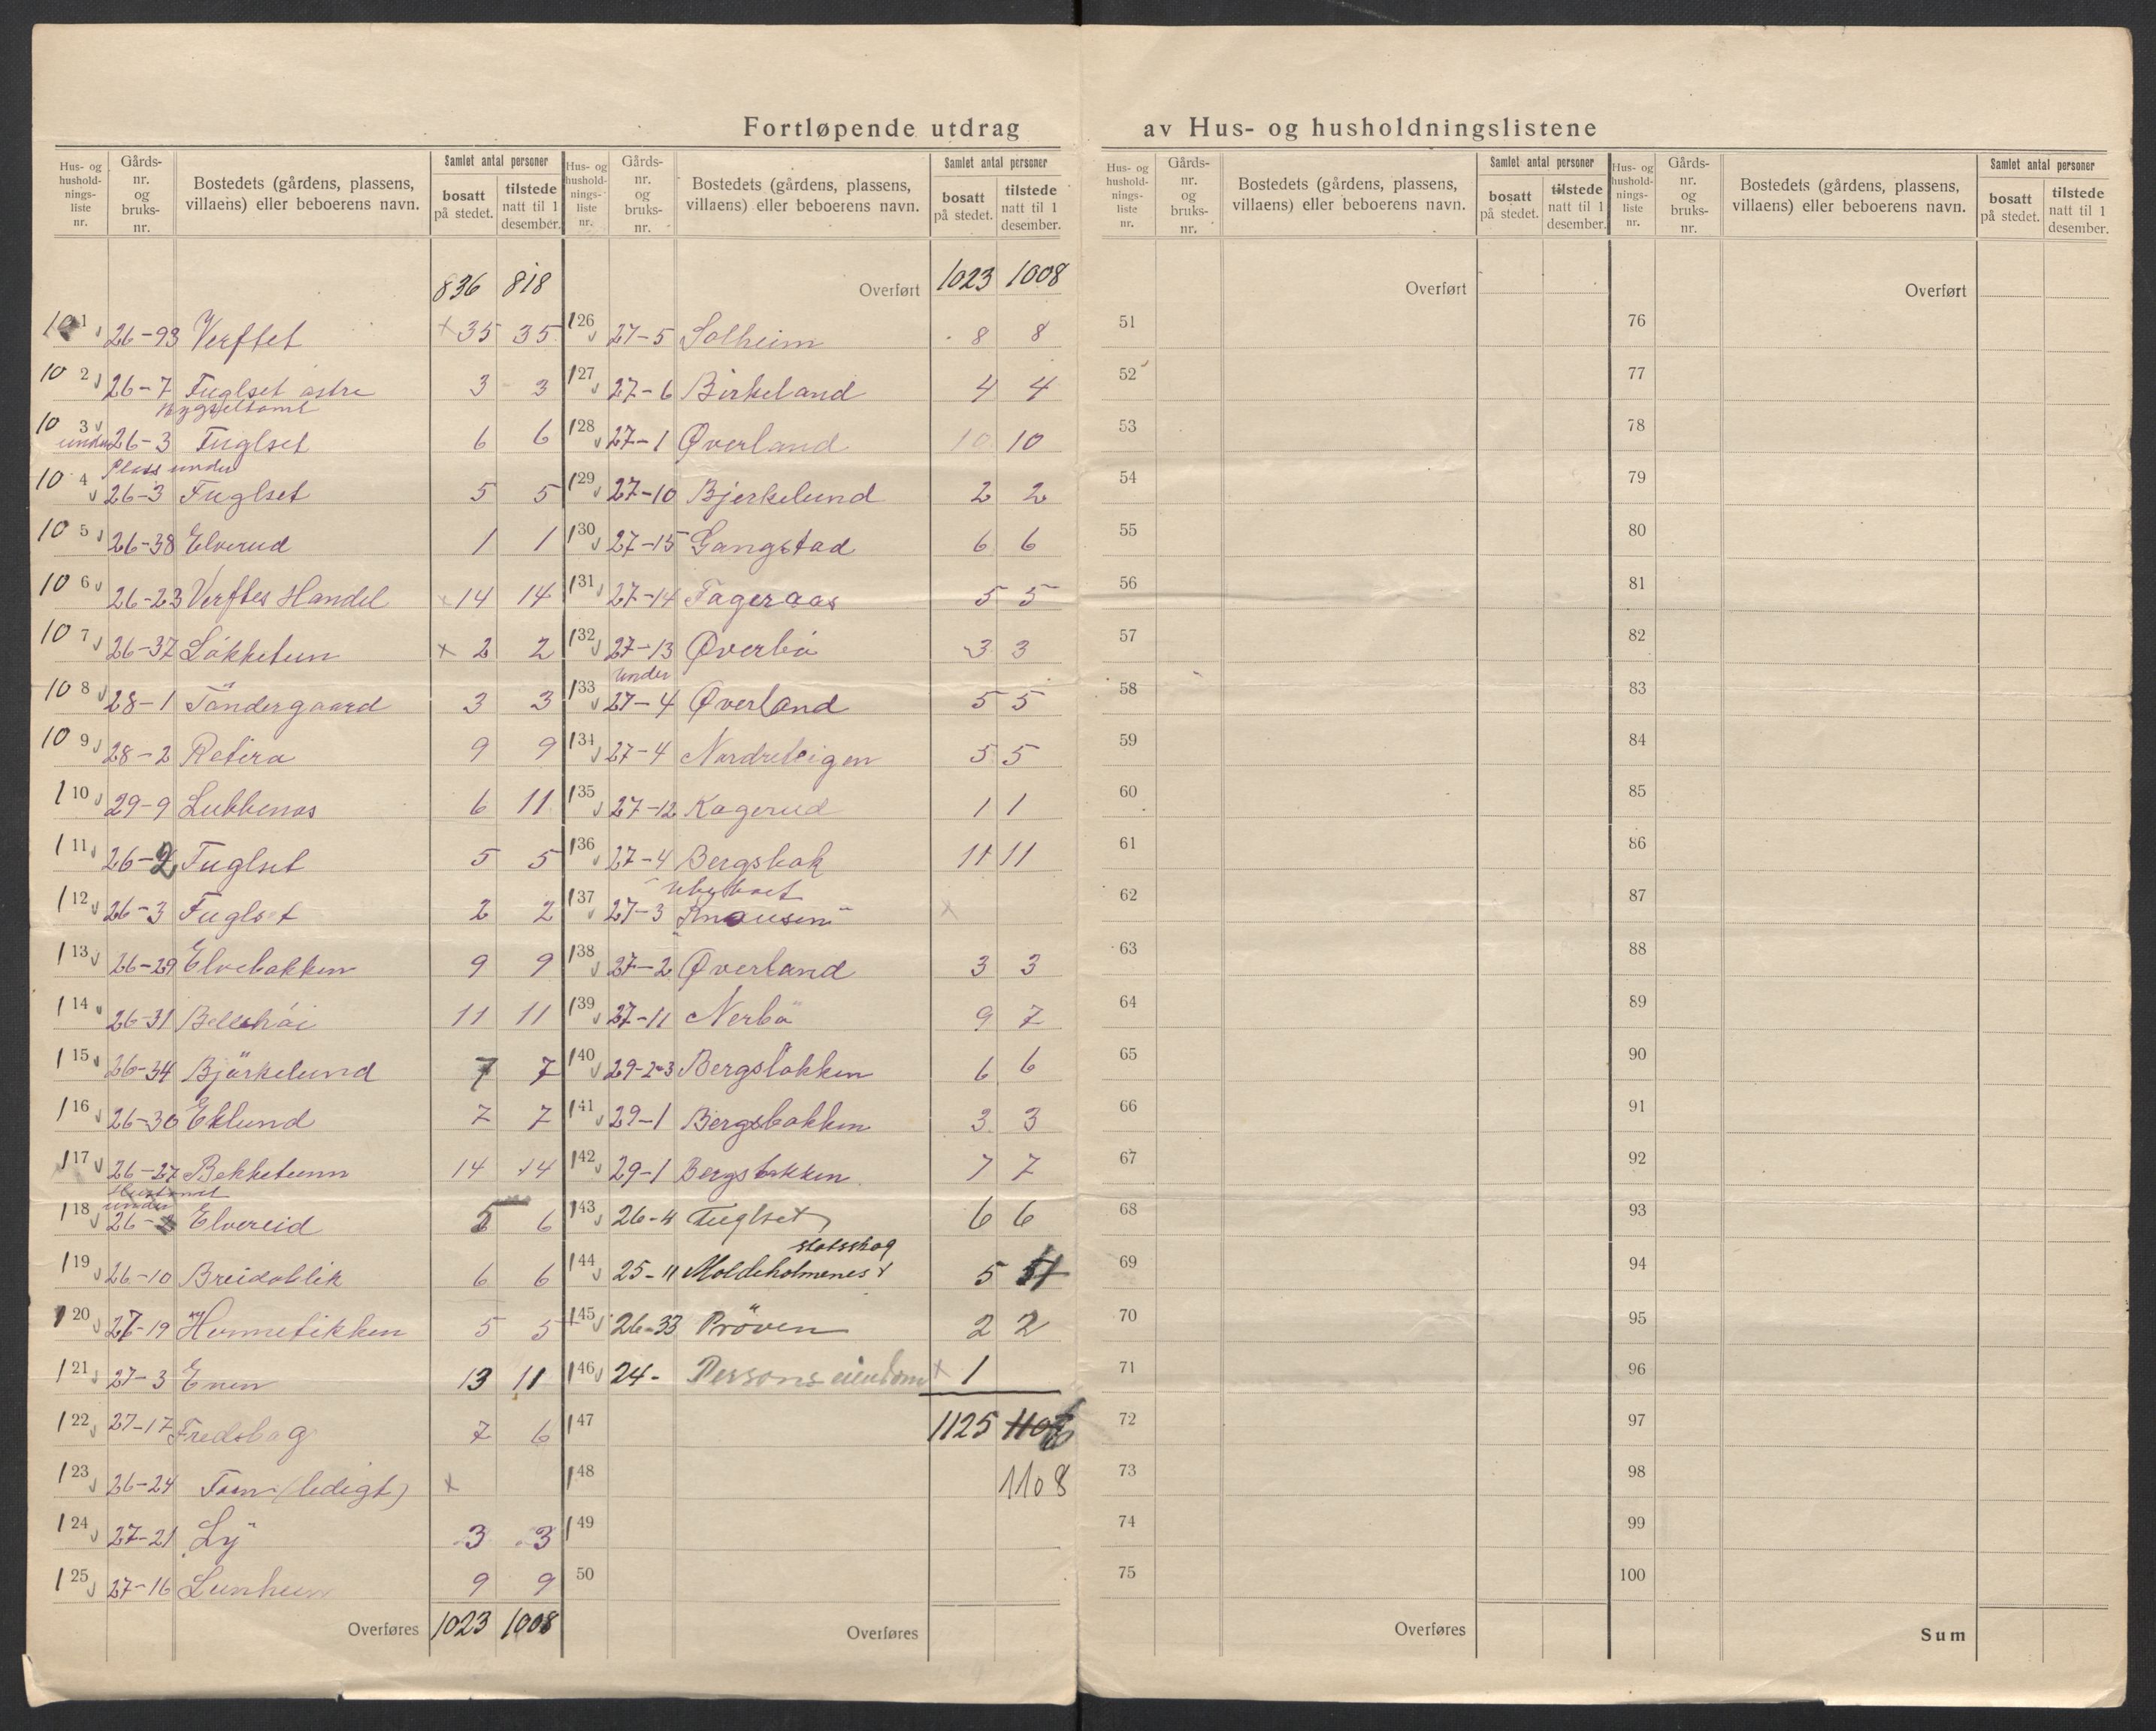 Fortløpende utdrag av Hus- og husholdningslistene
Hus- og husholdningsliste nr. Gårds-nr. og bruks-nr. Bostedets (gårdens, plassens, villaens) eller beboerens navn. Samlet antal personer bosatt på stedet. tilstede natt til 1 desember.
836 818
101 26-93 Verftet x 35 35
102 26-7 Fuglset østre 3 3
103 under 26-3 Fuglset 6 6
Plass under
104 26-3 Fuglset 5 5
105 26-38 Elverud 1 1
106 26-23 Verftes Handel x 14 14
107 26-37 Løkketun x 2 2
108 28-1 Töndergaard 3 3
109 28-2 Retira 9 9
110 29-9 Lubbenes 6 11
111 26-2 Fuglset 5 5
112 26-3 Fuglset 2 2
113 26-29 Elvebakken 9 9
114 26-31 11 11
115 26-34 Bjørkelund 7 7
116 26-30 Eklund 7 7
117 26-27 Bekketunn 14 14
under
118 26- Elvereid 5 6
119 26-10 Breidablik 6 6
120 27-19 5 5
121 27-3 Enen 13 11
122 27-17 7 6
123 26-24 Tom (ledigt) x
124 27-21 Ly 3 3
125 27-16 Lunheim 9 9
Overføres 1023 1008
Hus- og husholdningsliste nr. Gårds-nr. og bruks-nr. Bostedets (gårdens, plassens, villaens) eller beboerens navn. Samlet antal personer bosatt på stedet. tilstede natt til 1 desember.
Overført 1023 1008
126 27-5 Solheim 8 8
127 27-6 Birkeland 4 4
128 27-1 Øverland 10 10
129 27-10 Bjerkelund 2 2
130 27-15 Gangstad 6 6
131 27-14 Fageraas 5 5
132 27-13 Øverbø 3 3
under
133 27-4 Øverland 5 5
134 27-4 Nordreteigen 5 5
135 27-12 Kagerud 1 1
136 27-4 Bergsbak 11 11
Ubyboet
137 27-3 "Knausen" x
138 27-2 Øverland 3 3
139 27-11 Nerbö 9 7
140 29-2-3 Bergsbakken 6 6
141 29-1 Bergsbakken 3 3
142 29-1 Bergsbakken 7 7
143 26-4 Fuglset 6 6
statsskog
144 25-11 Moldeholmenes 5
145 26-33 Pröven 2 2
146 24- Persons eiendom x 1
147 1125
148 1108
149
50
Overføres
Hus- og husholdningsliste nr. Gårds-nr. og bruks-nr. Bostedets (gårdens, plassens, villaens) eller beboerens navn. Samlet antal personer bosatt på stedet. tilstede natt til 1 desember.
Overført
51
52
53
54
55
56
57
58
59
60
61
62
63
64
65
66
67
68
69
70
71
72
73
74
75
Overføres
Hus- og husholdningsliste nr. Gårds-nr. og bruks-nr. Bostedets (gårdens, plassens, villaens) eller beboerens navn. Samlet antal personer bosatt på stedet. tilstede natt til 1 desember.
Overført
76
77
78
79
80
81
82
83
84
85
86
87
88
89
90
91
92
93
94
95
96
97
98
99
100
Sum